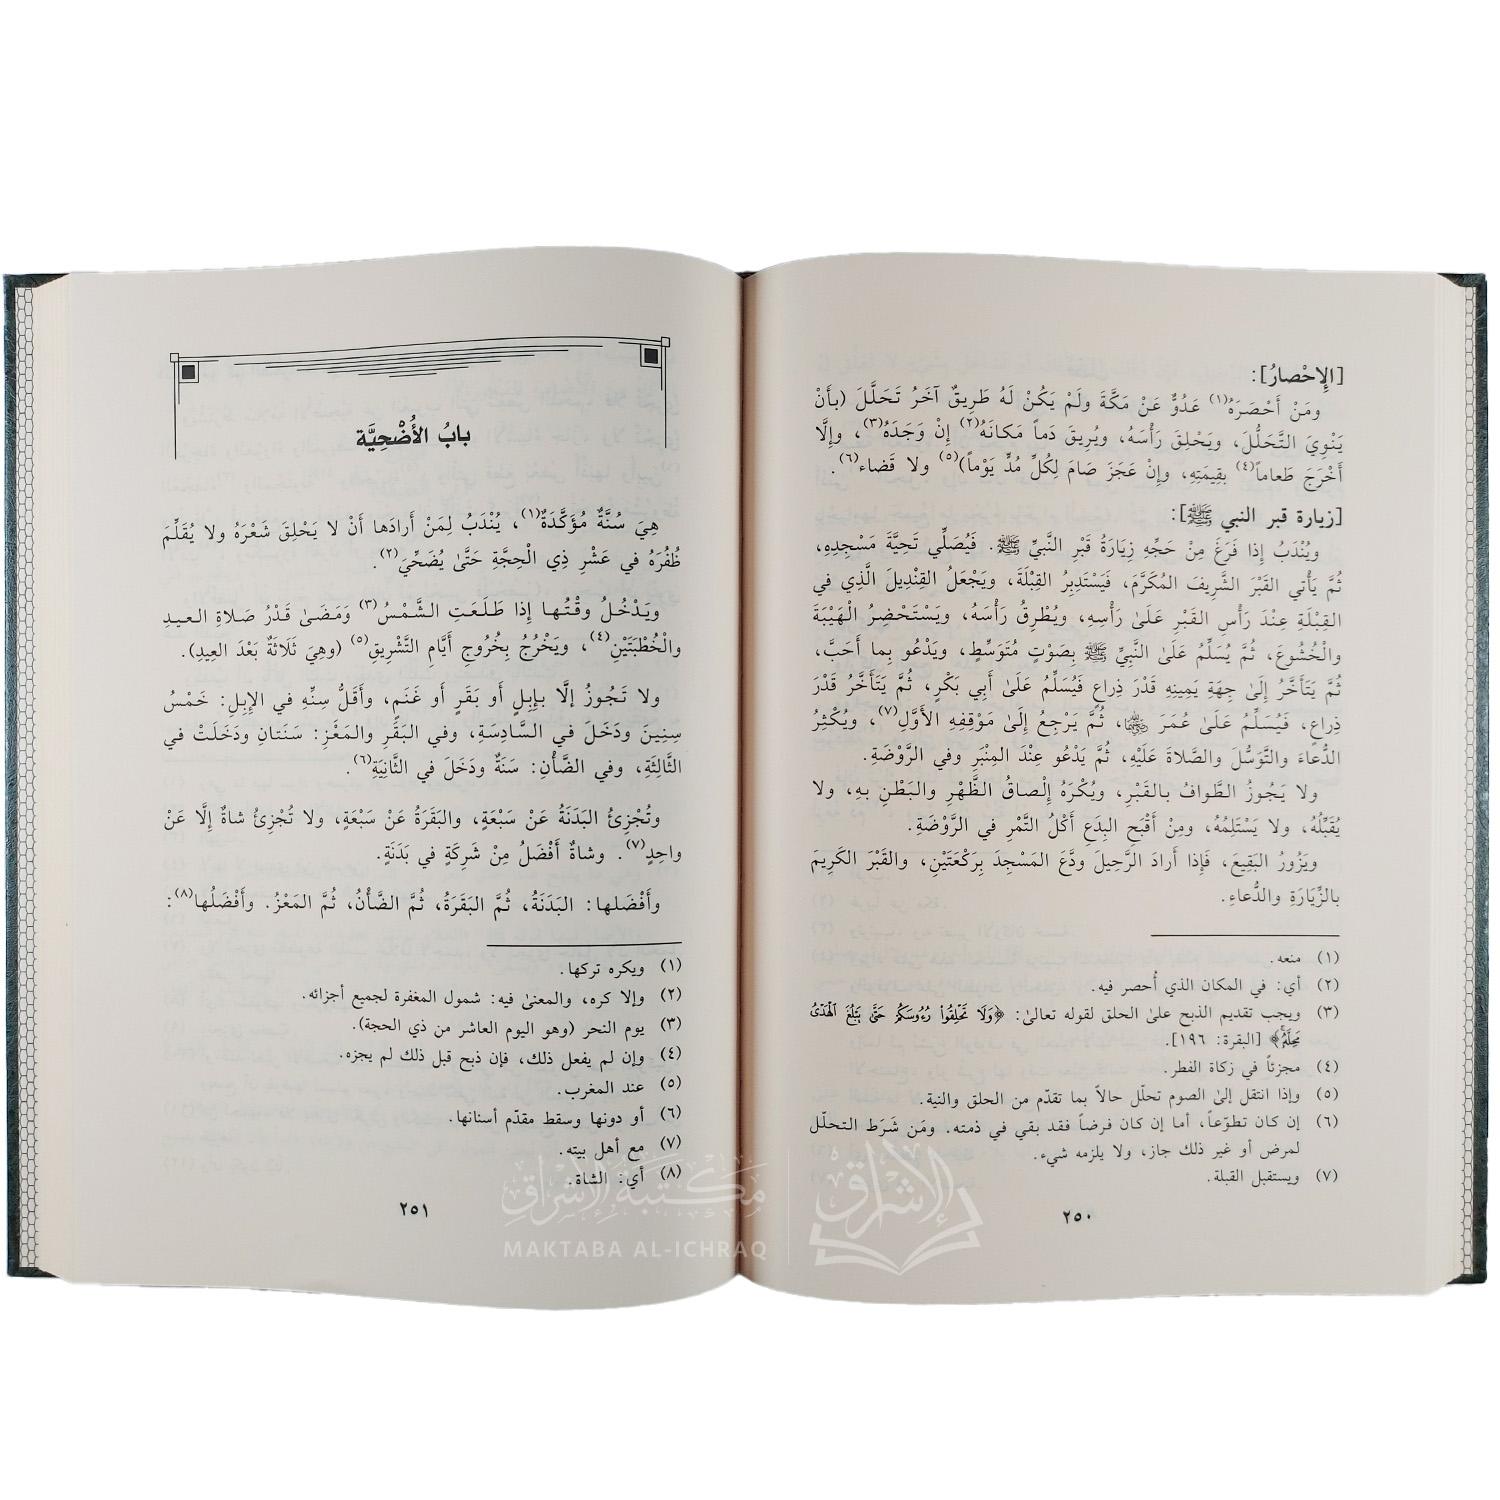 [الإِحْصارُ]:
ومَنْ أَحْصَرَهُ(١) عَدُوٌّ عَنْ مَكَّةَ ولَمْ يَكُنْ لَهُ طَرِيقٌ آخَرُ تَحَلَّلَ (بأَنْ
يَنْوِيَ التَّحَلُّلَ، ويَحْلِقَ رَأْسَهُ، ويُرِيقَ دَماً مَكانَهُ(٢) إِنْ وَجَدَهُ(٣)، وإِلَّا
أَخْرَجَ طَعاماً(٤) بقِيمَتِهِ، وإِنْ عَجَزَ صَامَ لِكُلِّ مُدٍّ يَوْماً)(٥) ولا قَضاء(٦).
[زيارة قبر النبي ﷺ]:
ويُنْدَبُ إِذا فَرَغَ مِنْ حَجِّهِ زِيَارَةُ قَبْرِ النَّبِيِّ ﷺ. فَيُصَلِّي تَحِيَّةَ مَسْجِدِهِ،
ثُمَّ يَأْتي القَبْرَ الشَّرِيفَ المُكَرَّمَ، فَيَسْتَدْبِرُ القِبْلَةَ، ويَجْعَلُ القِنْدِيلَ الَّذِي في
القِبْلَةِ عِنْدَ رَأْسِ القَبْرِ عَلَىٰ رَأْسِهِ، ويُطْرِقُ رَأْسَهُ، ويَسْتَحْضِرُ الْهَيْبَةَ
والْخُشُوعَ، ثُمَّ يُسَلِّمُ عَلَىٰ النَّبِيِّ ﷺ بِصَوْتٍ مُتَوَسِّطٍ، ويَدْعُو بِما أَحَبَّ،
ثُمَّ يَتَأَخَّرُ إِلَىٰ جِهَةِ يَمِينِهِ قَدْرَ ذِراعٍ فَيُسَلِّمُ عَلَىٰ أَبِي بَكْرٍ، ثُمَّ يَتَأَخَّرُ قَدْرَ
ذِراعٍ، فَيُسَلِّمُ عَلَىٰ عُمَرَ ، ثُمَّ يَرْجِعُ إِلَىٰ مَوْقِفِهِ الأَوَّلِ(٧)، ويُكْثِرُ
الدُّعاءَ والتَّوَسُّلَ والصَّلاةَ عَلَيْهِ، ثُمَّ يَدْعُو عِنْدَ المِنْبَرِ وفي الرَّوْضَةِ.
ولا يَجُوزُ الطَّوافُ بالقَبْرِ، ويُكْرَهُ إِلْصاقُ الظَّهْرِ والبَطْنِ بهِ، ولا
يُقَبِّلُهُ، ولا يَسْتَلِمُهُ، ومِنْ أَقْبَحِ البِدَعِ أَكْلُ التَّمْرِ في الرَّوْضَةِ.
ويَزُورُ البَقِيعَ، فَإِذا أَرادَ الرَّحِيلَ وَدَّعَ المَسْجِدَ بِرَكْعَتَيْنِ، والقَبْرَ الكَرِيمَ
بالزِّيَارَةِ والدُّعاءِ.
(١) منعه.
(٢) أي: في المكان الذي أُحصر فيه.
(٣) ويجب تقديم الذبح علىٰ الحلق لقوله تعالىٰ: ﴿وَلَا تَحْلِقُوا۟ رُءُوسَكُمْ حَتَّىٰ يَبْلُغَ ٱلْهَدْىُ
مَحِلَّهُۥ﴾ [البقرة: ١٩٦].
(٤) مجزئاً في زكاة الفطر.
(٥) وإذا انتقل إلىٰ الصوم تحلّل حالاً بما تقدّم من الحلق والنية.
(٦) إن كان تطوّعاً، أما إن كان فرضاً فقد بقي في ذمته. ومَن شَرَط التحلّل
لمرض أو غير ذلك جاز، ولا يلزمه شيء.
(٧) ويستقبل القبلة.
٢٥٠
بابُ الأُضْحِيَّة
هِيَ سُنَّةٌ مُؤَكَّدَةٌ(١)، يُنْدَبُ لِمَنْ أَرادَها أَنْ لا يَحْلِقَ شَعْرَهُ ولا يُقَلِّمَ
ظُفُرَهُ في عَشْرِ ذِي الْحِجَّةِ حَتَّىٰ يُضَحِّيَ(٢).
ويَدْخُلُ وقْتُها إِذا طَلَعَتِ الشَّمْسُ(٣) وَمَضَىٰ قَدْرُ صَلاةِ العيدِ
والْخُطْبَتَيْنِ(٤)، ويَخْرُجُ بِخُروجِ أَيَّامِ التَّشْرِيقِ(٥) (وهِيَ ثَلَاثَةٌ بَعْدَ العِيدِ).
ولا تَجُوزُ إلَّا بإِبِلٍ أَو بَقَرٍ أَو غَنَمٍ، وأَقَلُّ سِنِّهِ في الإِبِلِ: خَمْسُ
سِنِينَ ودَخَلَ في السَّادِسَةِ، وفي البَقَرِ والمَعْزِ: سَنَتانِ ودَخَلَتْ في
الثَّالِثَةِ، وفي الضَّأْنِ: سَنَةٌ ودَخَلَ في الثَّانِيَةِ(٦).
وتُجْزِئُ البَدَنَةُ عَنْ سَبْعَةٍ، والبَقَرَةُ عَنْ سَبْعَةٍ، ولا تُجْزِئُ شاةٌ إِلَّا عَنْ
واحِدٍ(٧). وشاةٌ أَفْضَلُ مِنْ شَرِكَةٍ في بَدَنَةٍ.
وأَفْضَلها: البَدَنَةُ، ثُمَّ البَقَرَةُ، ثُمَّ الضَّأْنُ، ثُمَّ المَعْزُ. وأَفْضَلُها(٨):
(١) ويكره تركها.
(٢) وإلا كره، والمعنىٰ فيه: شمول المغفرة لجميع أجزائه.
(٣) يوم النحر (وهو اليوم العاشر من ذي الحجة).
(٤) وإن لم يفعل ذلك، فإن ذبح قبل ذلك لم يجزه.
(٥) عند المغرب.
(٦) أو دونها وسقط مقدّم أسنانها.
(٧) مع أهل بيته.
(٨) أي: الشاة.
٢٥١
مكتبة الإشراق
MAKTABA AL-ICHRAQ
الإشراق